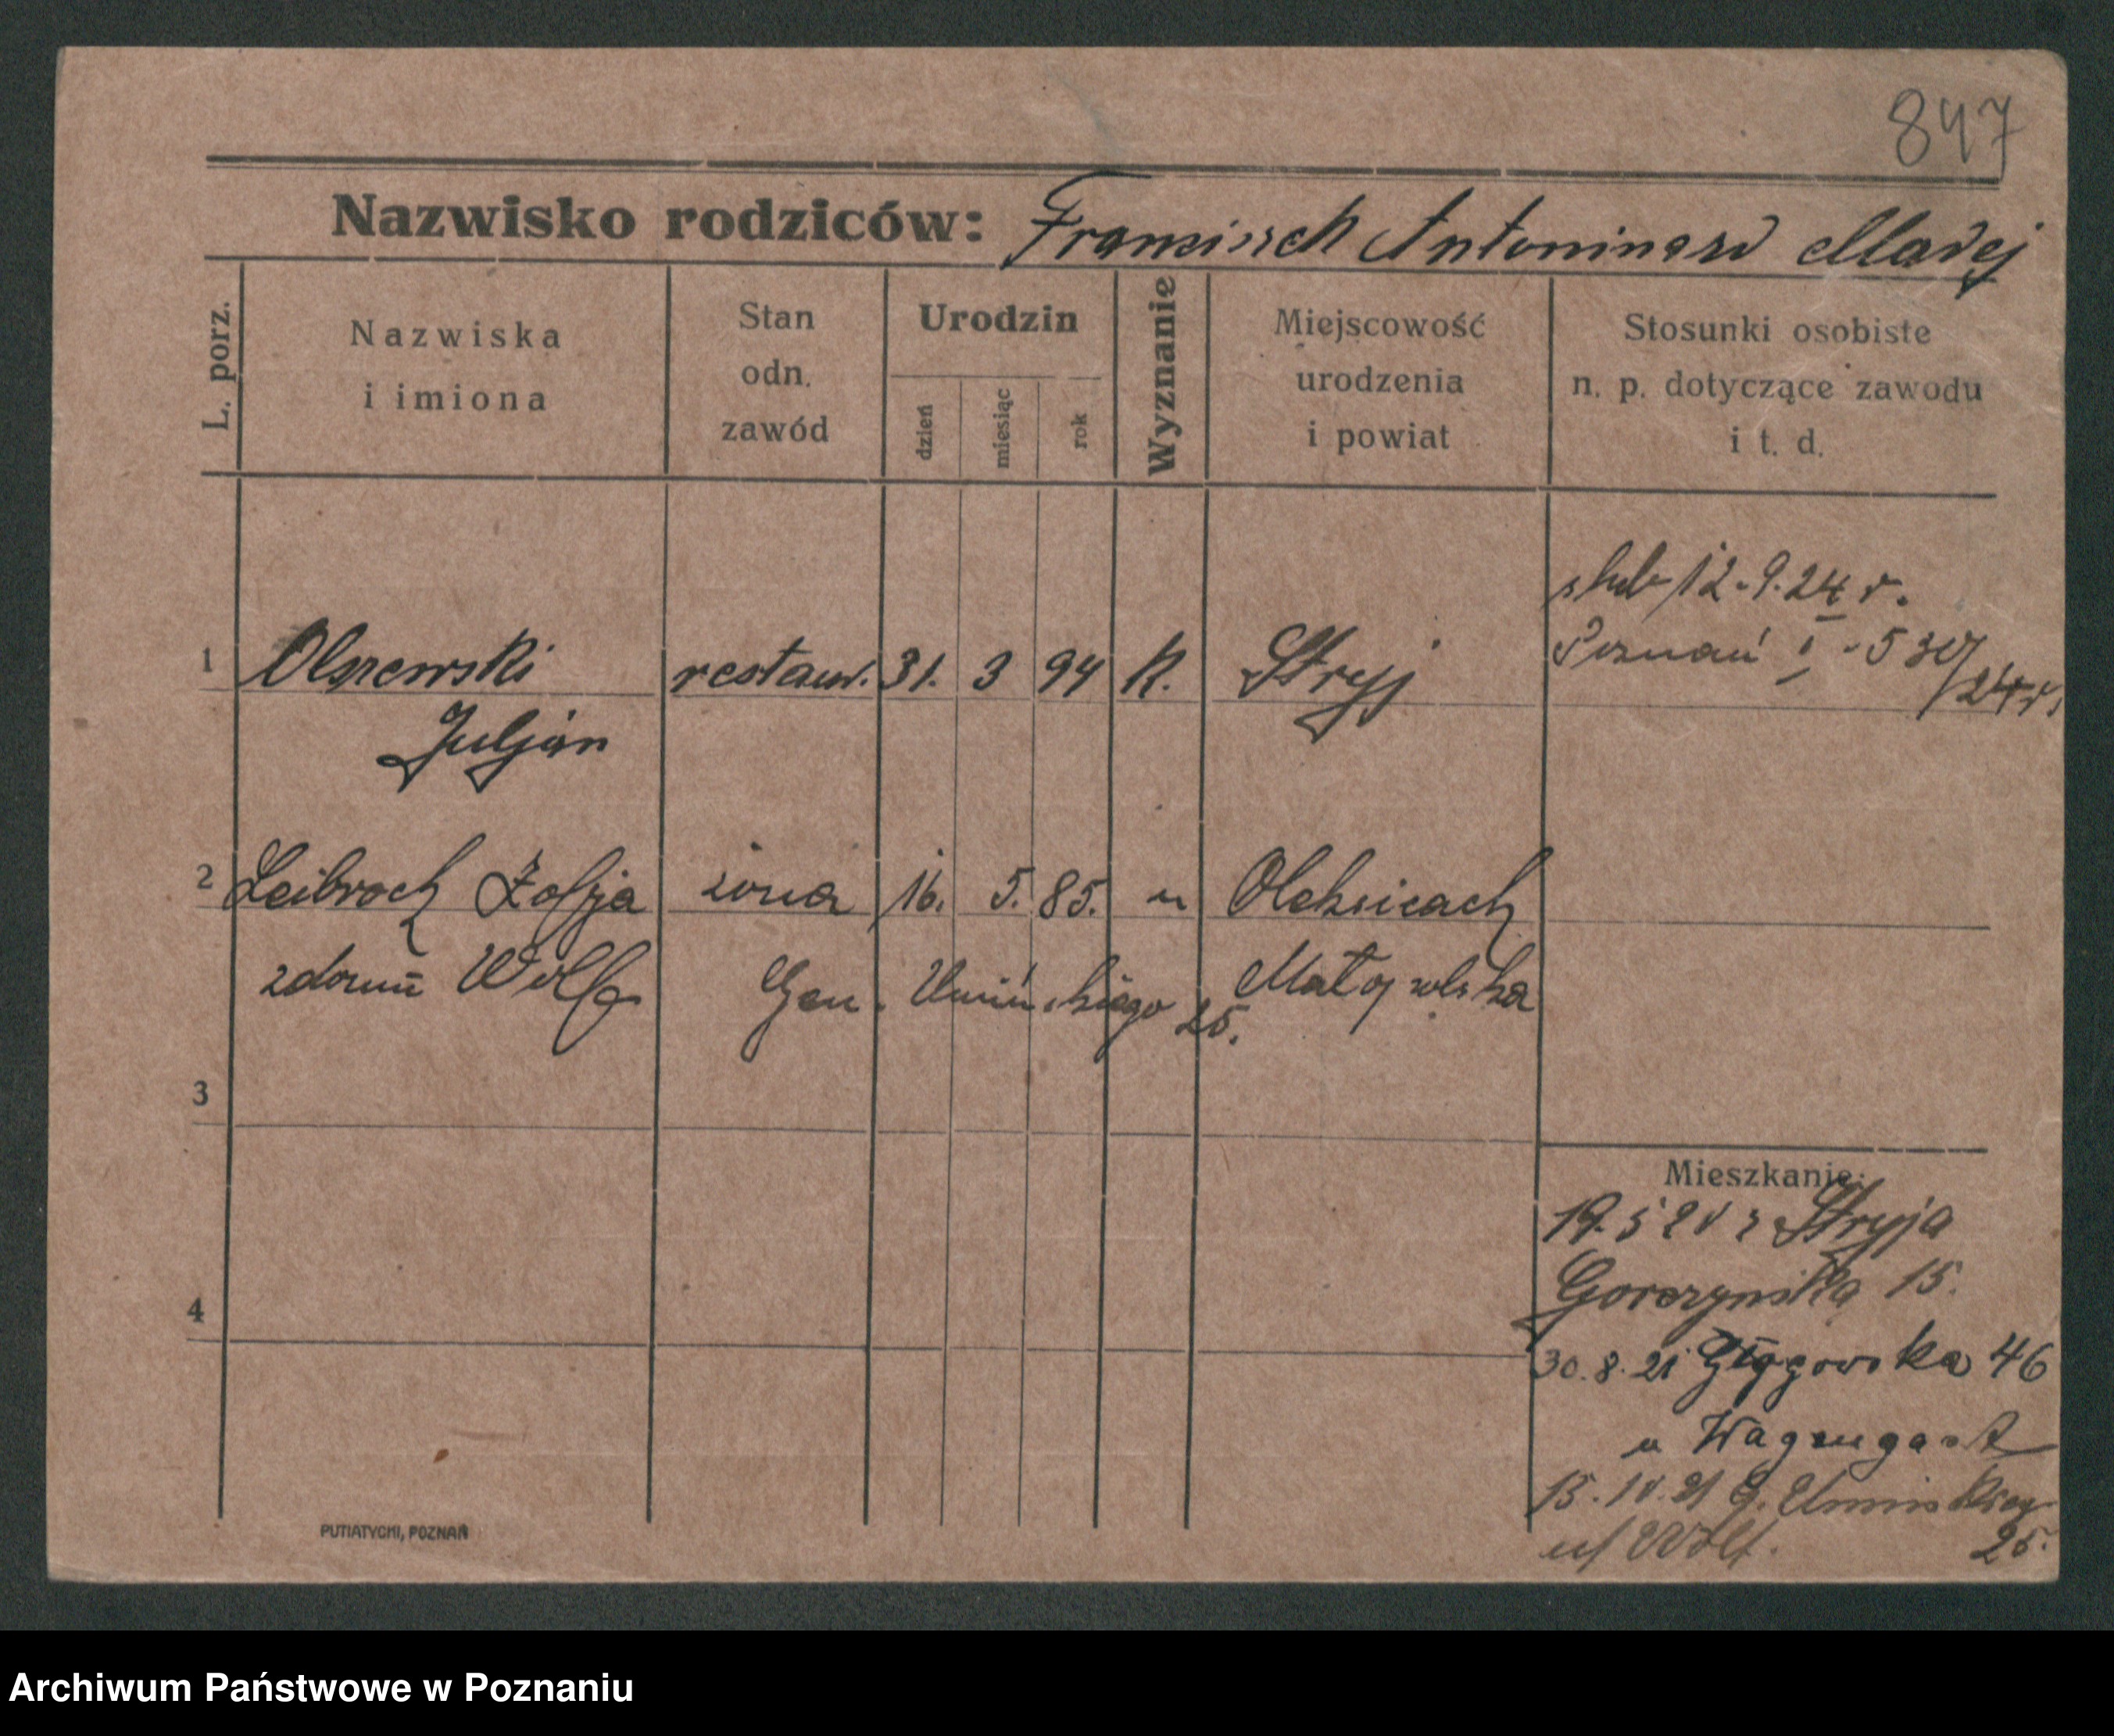 847
Nazwisko rodziców: Franciszek Antonina zd Madej
L. porz.
Nazwiska
i imiona
Stan
odn.
zawód
Urodzin
dzień
miesiąc
rok
Wyznanie
Miejscowość
urodzenia
i powiat
Stosunki osobiste
n. p. dotyczące zawodu
i t. d.
ślub 12.9.24 r.
Poznań I
/24 r.
1 Olszewski restaur. 31. 3 94 k. Stryj
Juljan
2 Leibroch Zofja żona 16. 5. 85. "
z domu Wolf
Gen. Umińskiego 25.
Małopolska
3
4
Mieszkanie:
Stryja
Gorczyńska 15.
30.8.21 Głogowska 46
u Wagengast
G. Umińskiego
25.
u/ Wolf.
PUTIATYCKI, POZNAŃ
Archiwum Państwowe w Poznaniu